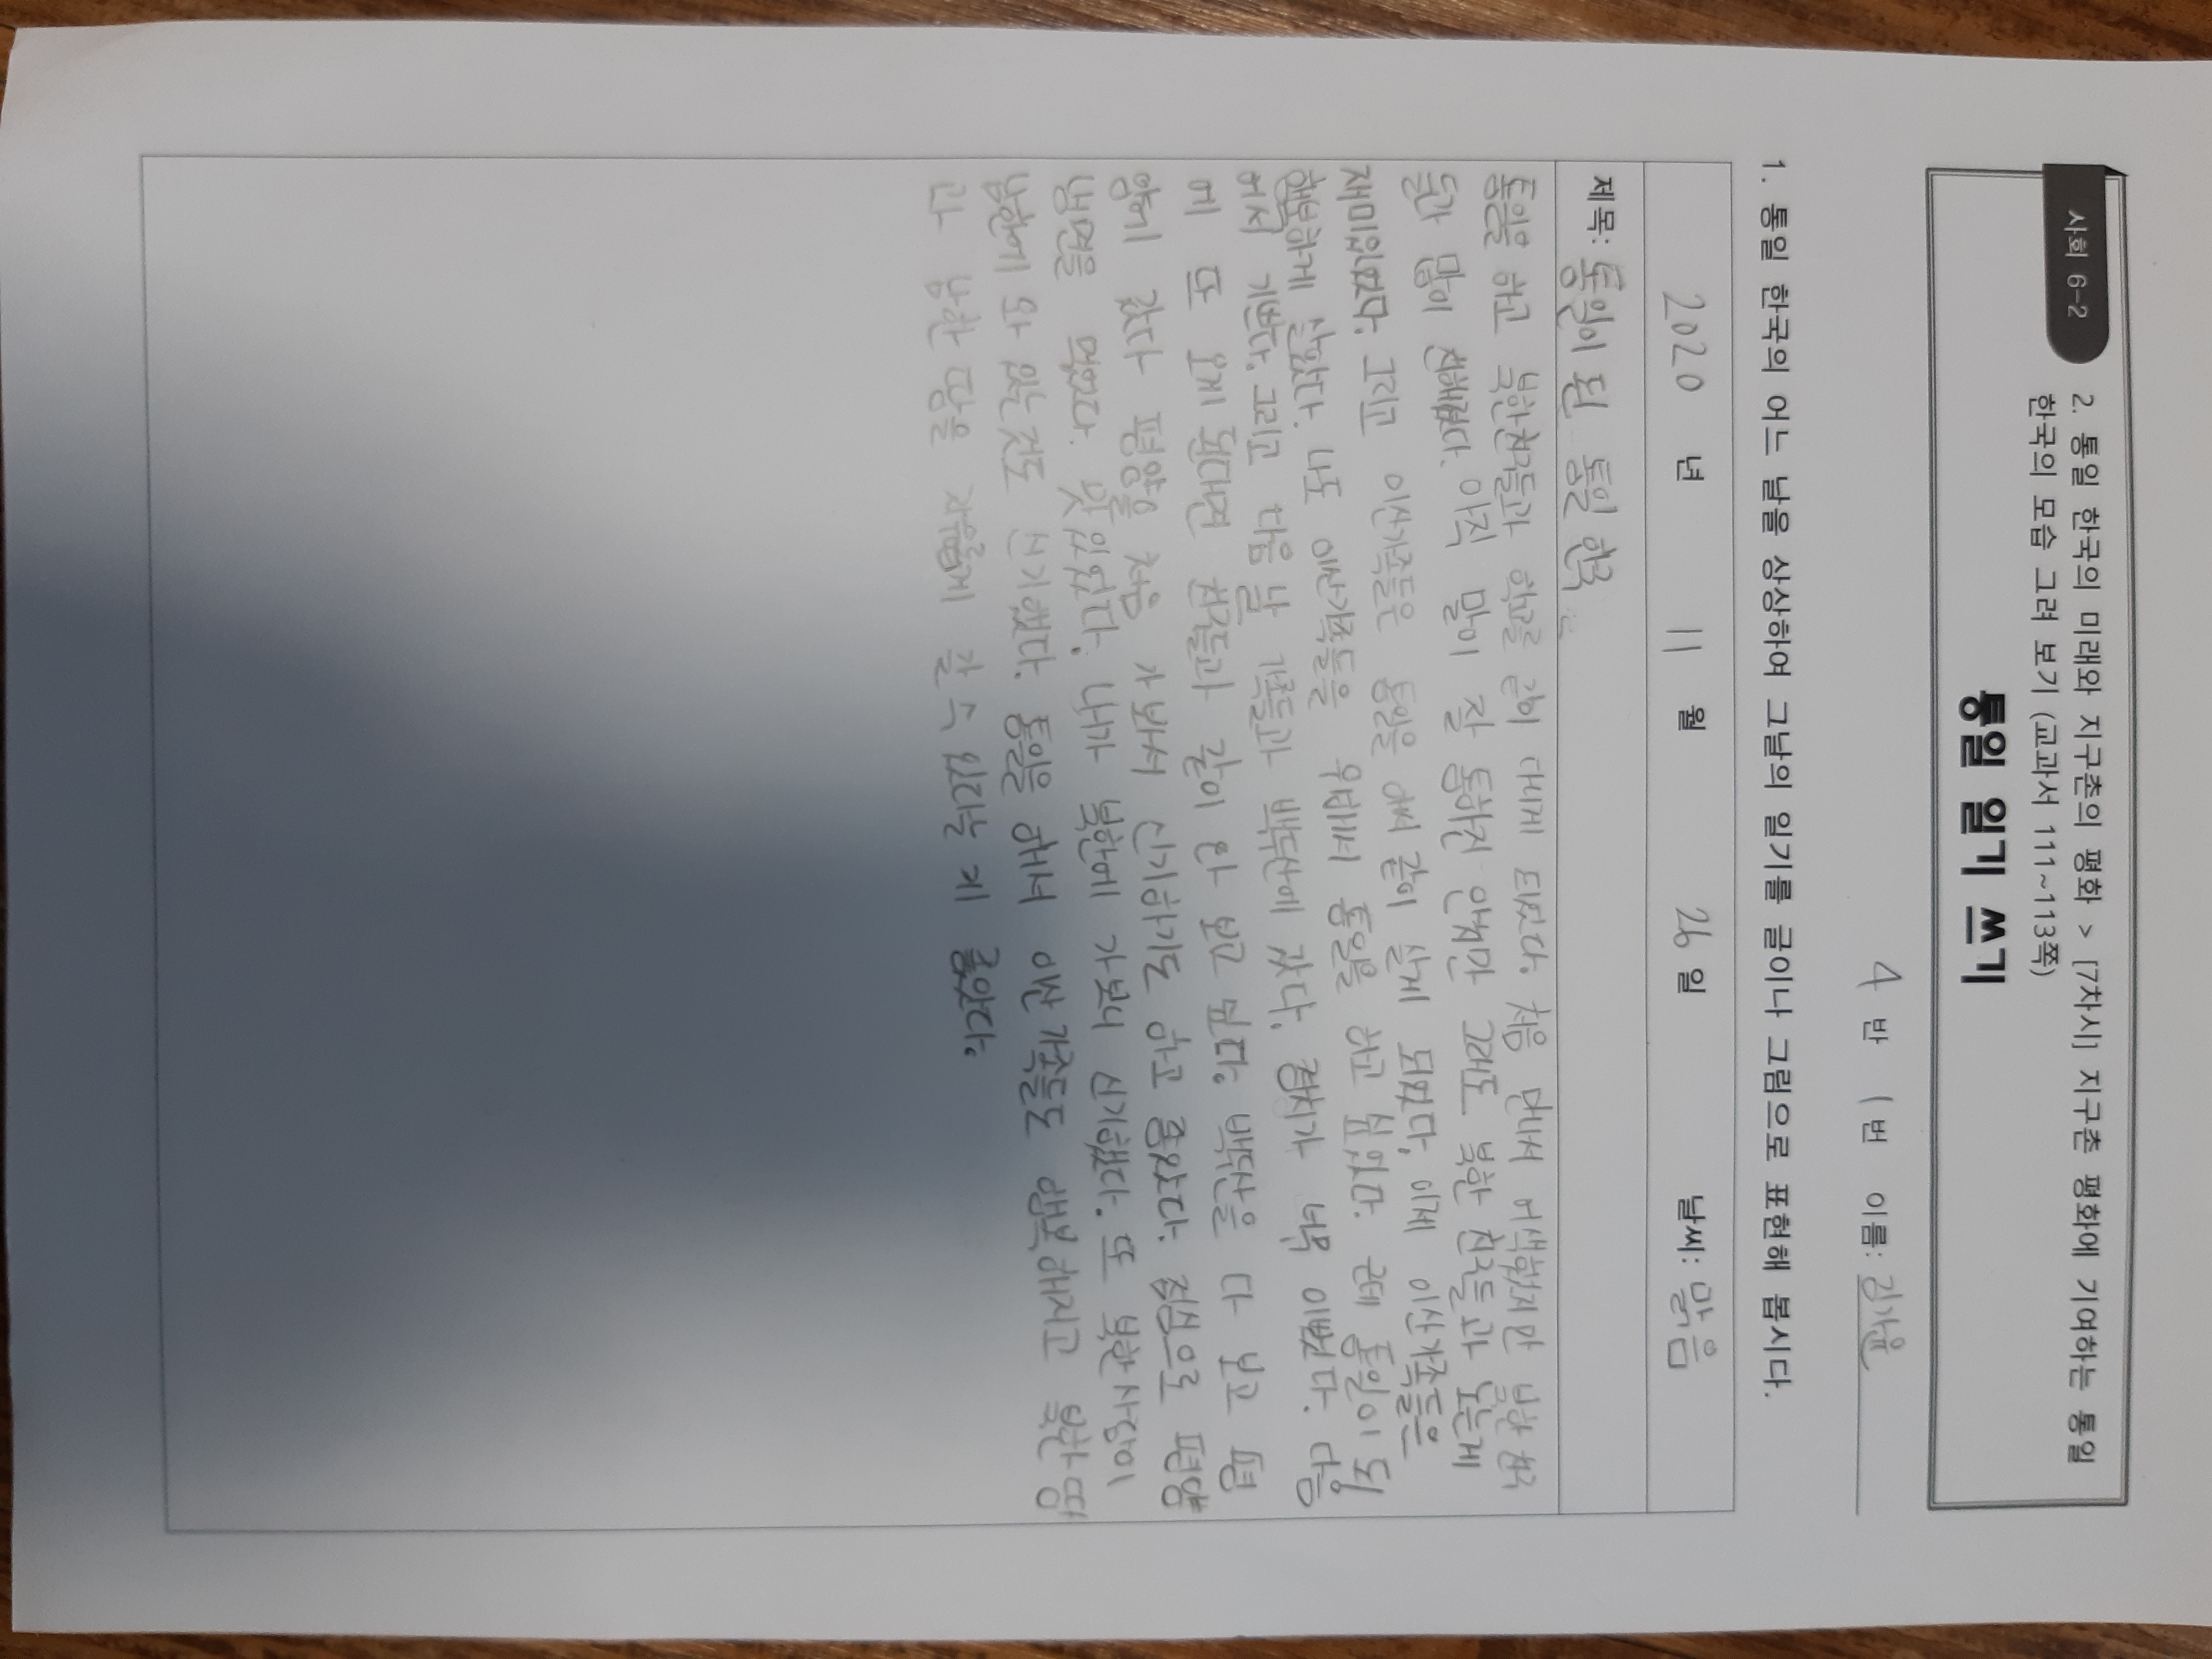 사회 6-2
2. 통일 한국의 미래와 지구촌의 평화 > [7차시] 지구촌 평화에 기여하는 통일
한국의 모습 그려 보기 (교과서 111~113쪽)
통일 일기 쓰기
4 반 1 번 이름: 김가윤
1. 통일 한국의 어느 날을 상상하여 그날의 일기를 글이나 그림으로 표현해 봅시다.
2020 년 11 월 26 일 날씨: 맑음
제목: 통일이 된 통일 한국
통일을 하고 북한친구들과 학교를 같이 다니게 되었다. 처음 만나서 어색했지만 북한 친구
들과 많이 친해졌다. 아직 말이 잘 통하진 안지만 그래도 북한 친구들과 노는게
재미있었다. 그리고 이산가족들은 통일을 해서 같이 살게 되었다. 이제 이산가족들은
행복하게 살았다. 나도 이산가족들을 위해서 통일을 하고 싶었다. 근데 통일이 되
어서 기쁘다. 그리고 다음 날 가족들과 백두산에 갔다. 경치가 너무 이뻤다. 다음
에 또 오게 된다면 친구들과 같이 와 보고 싶다. 백두산을 다 보고 평
양에 갔다 평양을 처음 가 봐서 신기하기도 하고 좋았다. 점심으로 평양
냉면을 먹었다. 맛있었다. 내가 북한에 가보니 신기했다. 또 북한사람이
남한에 와 있는 것도 신기했다. 통일을 해서 이산 가족들도 행복해지고 북한 땅
과 남한 땅을 자유롭게 갈 수 있다는 게 좋았다.